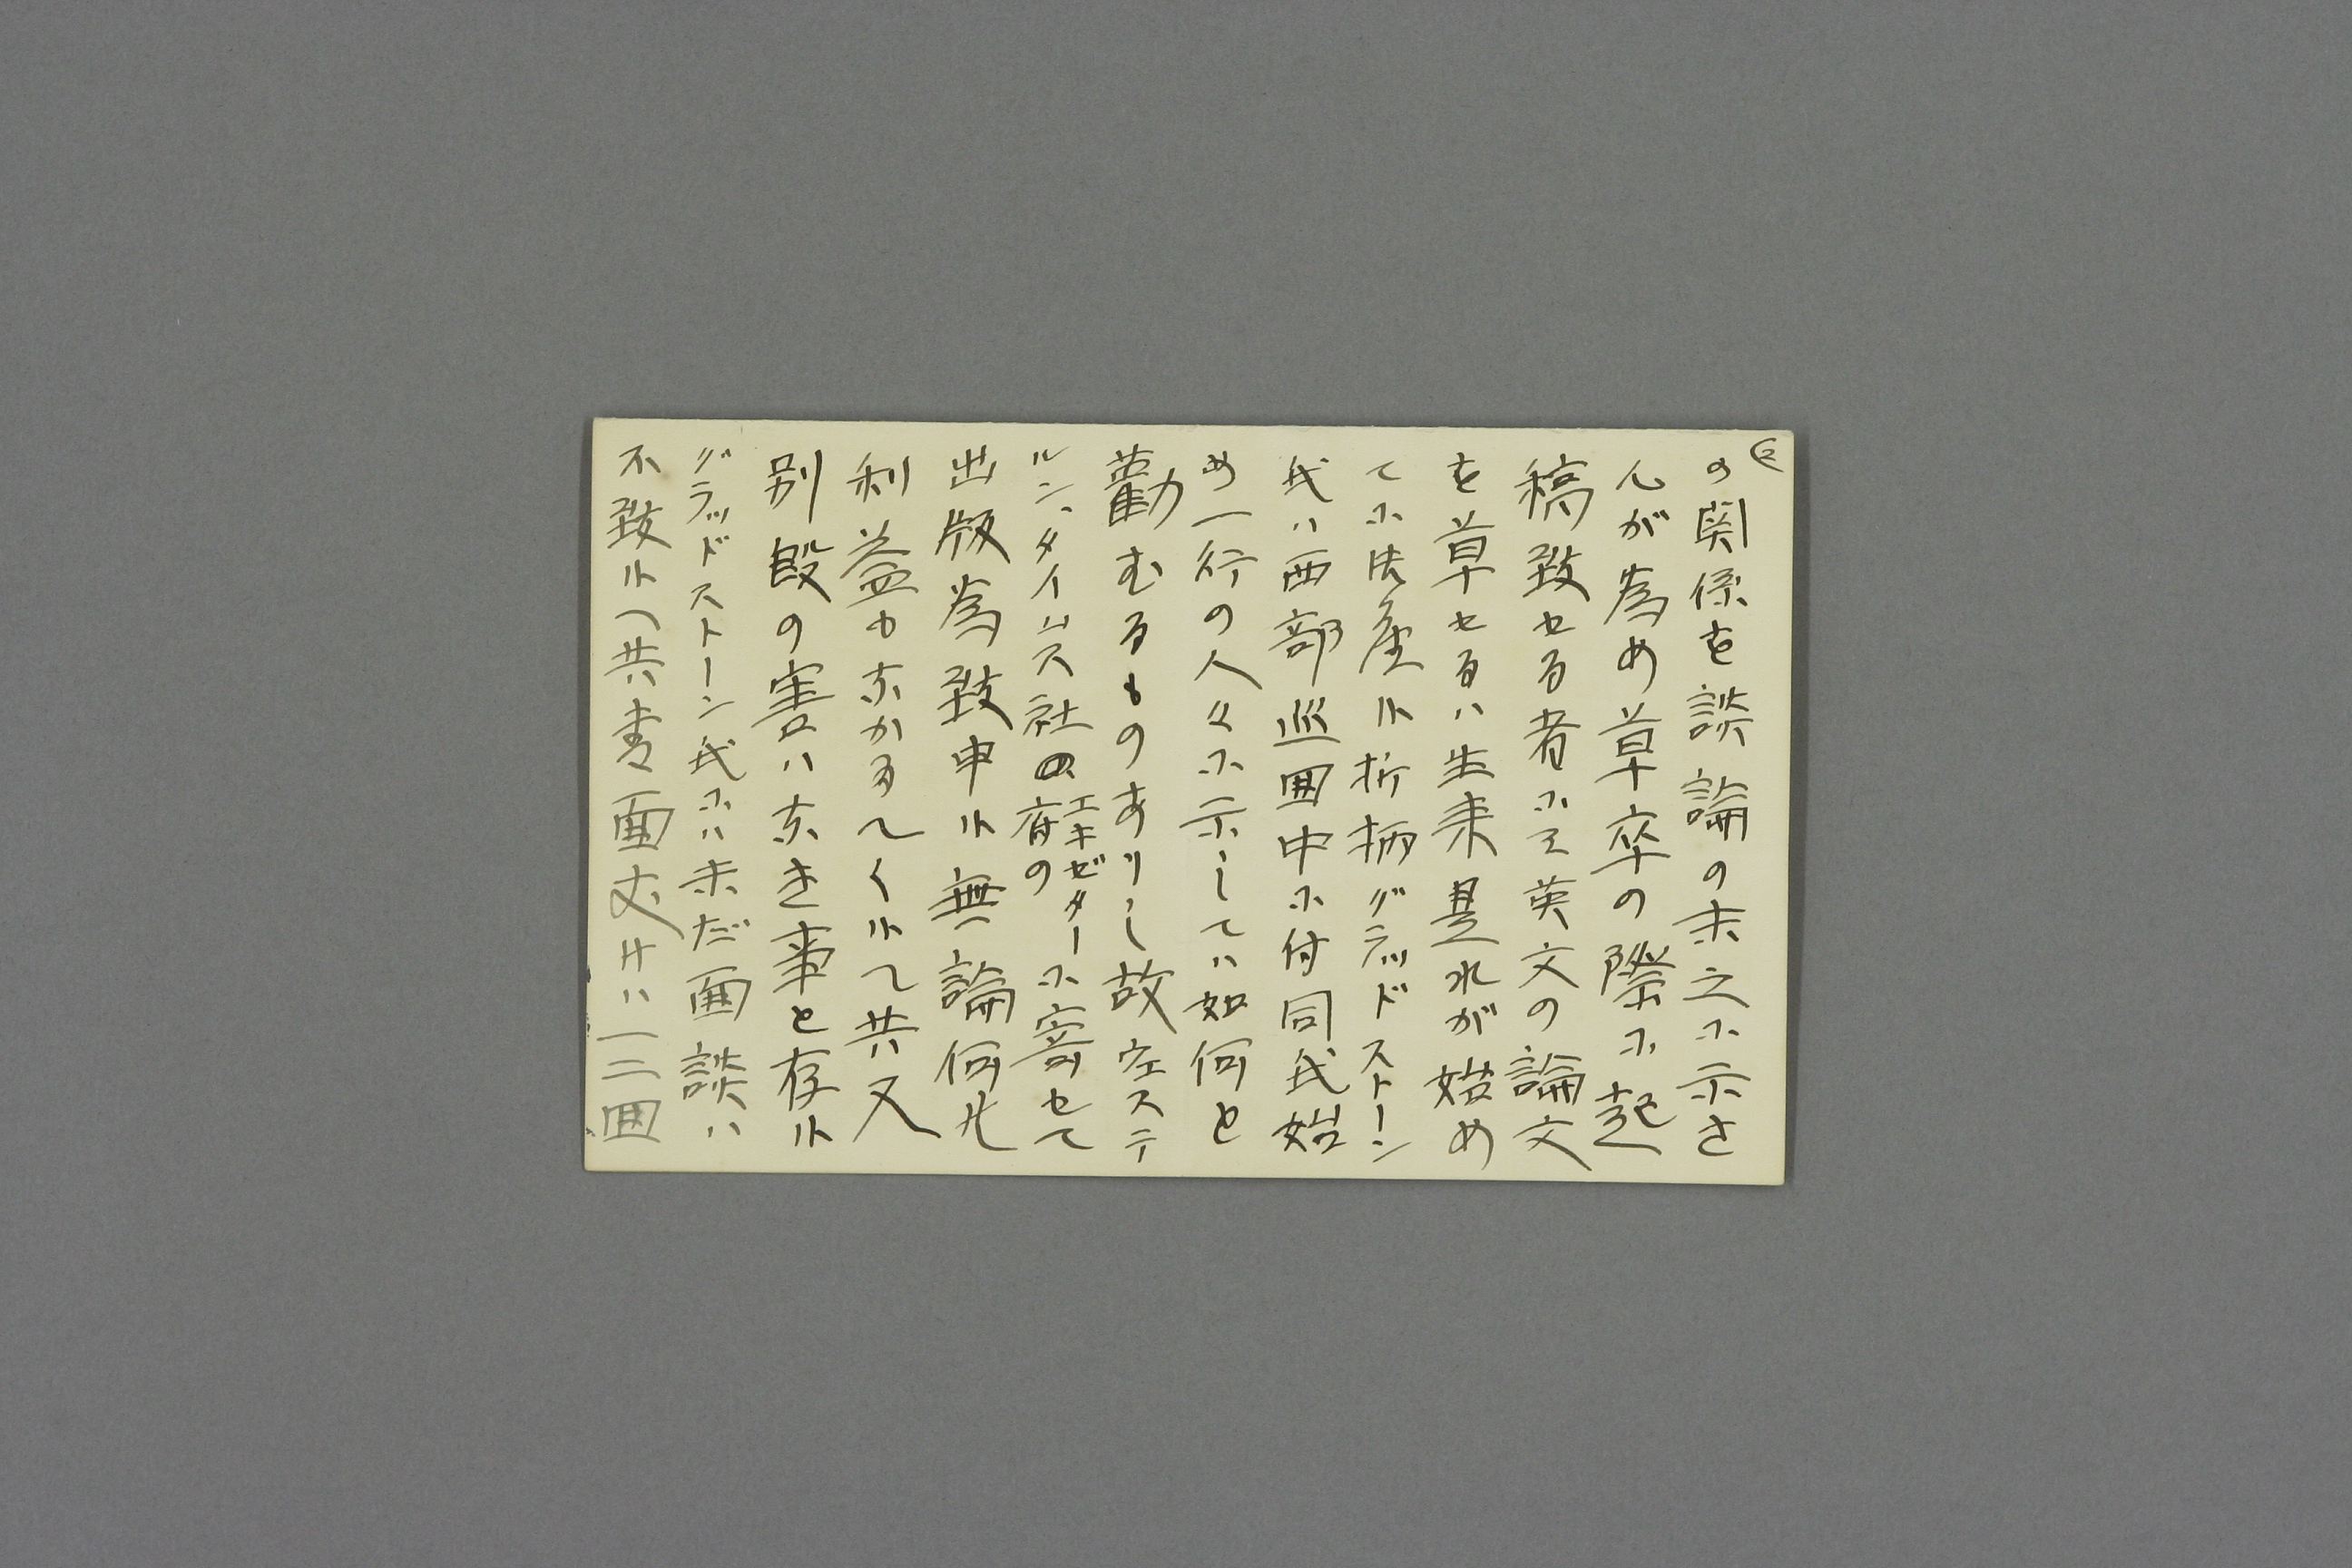 (2
の関係を談論の末之に示さ
んが為め草卒の際に起
稿致せる者にて英文の論文
を草せるハ生来是れが始め
てに御座候折柄グラッドストーン
氏ハ西部巡回中に付同氏始
め一行の人々に示してハ如何と
勸むるものありし故ウエステ
ルン、タイムス社のエキゼター府のに寄せて
出版為致申候無論何
利益もなかるべく候へ共又
別段の害ハなき事と存候
グラッドストーン氏にハ未だ面談ハ
不致候へ共書面丈けハ一二回